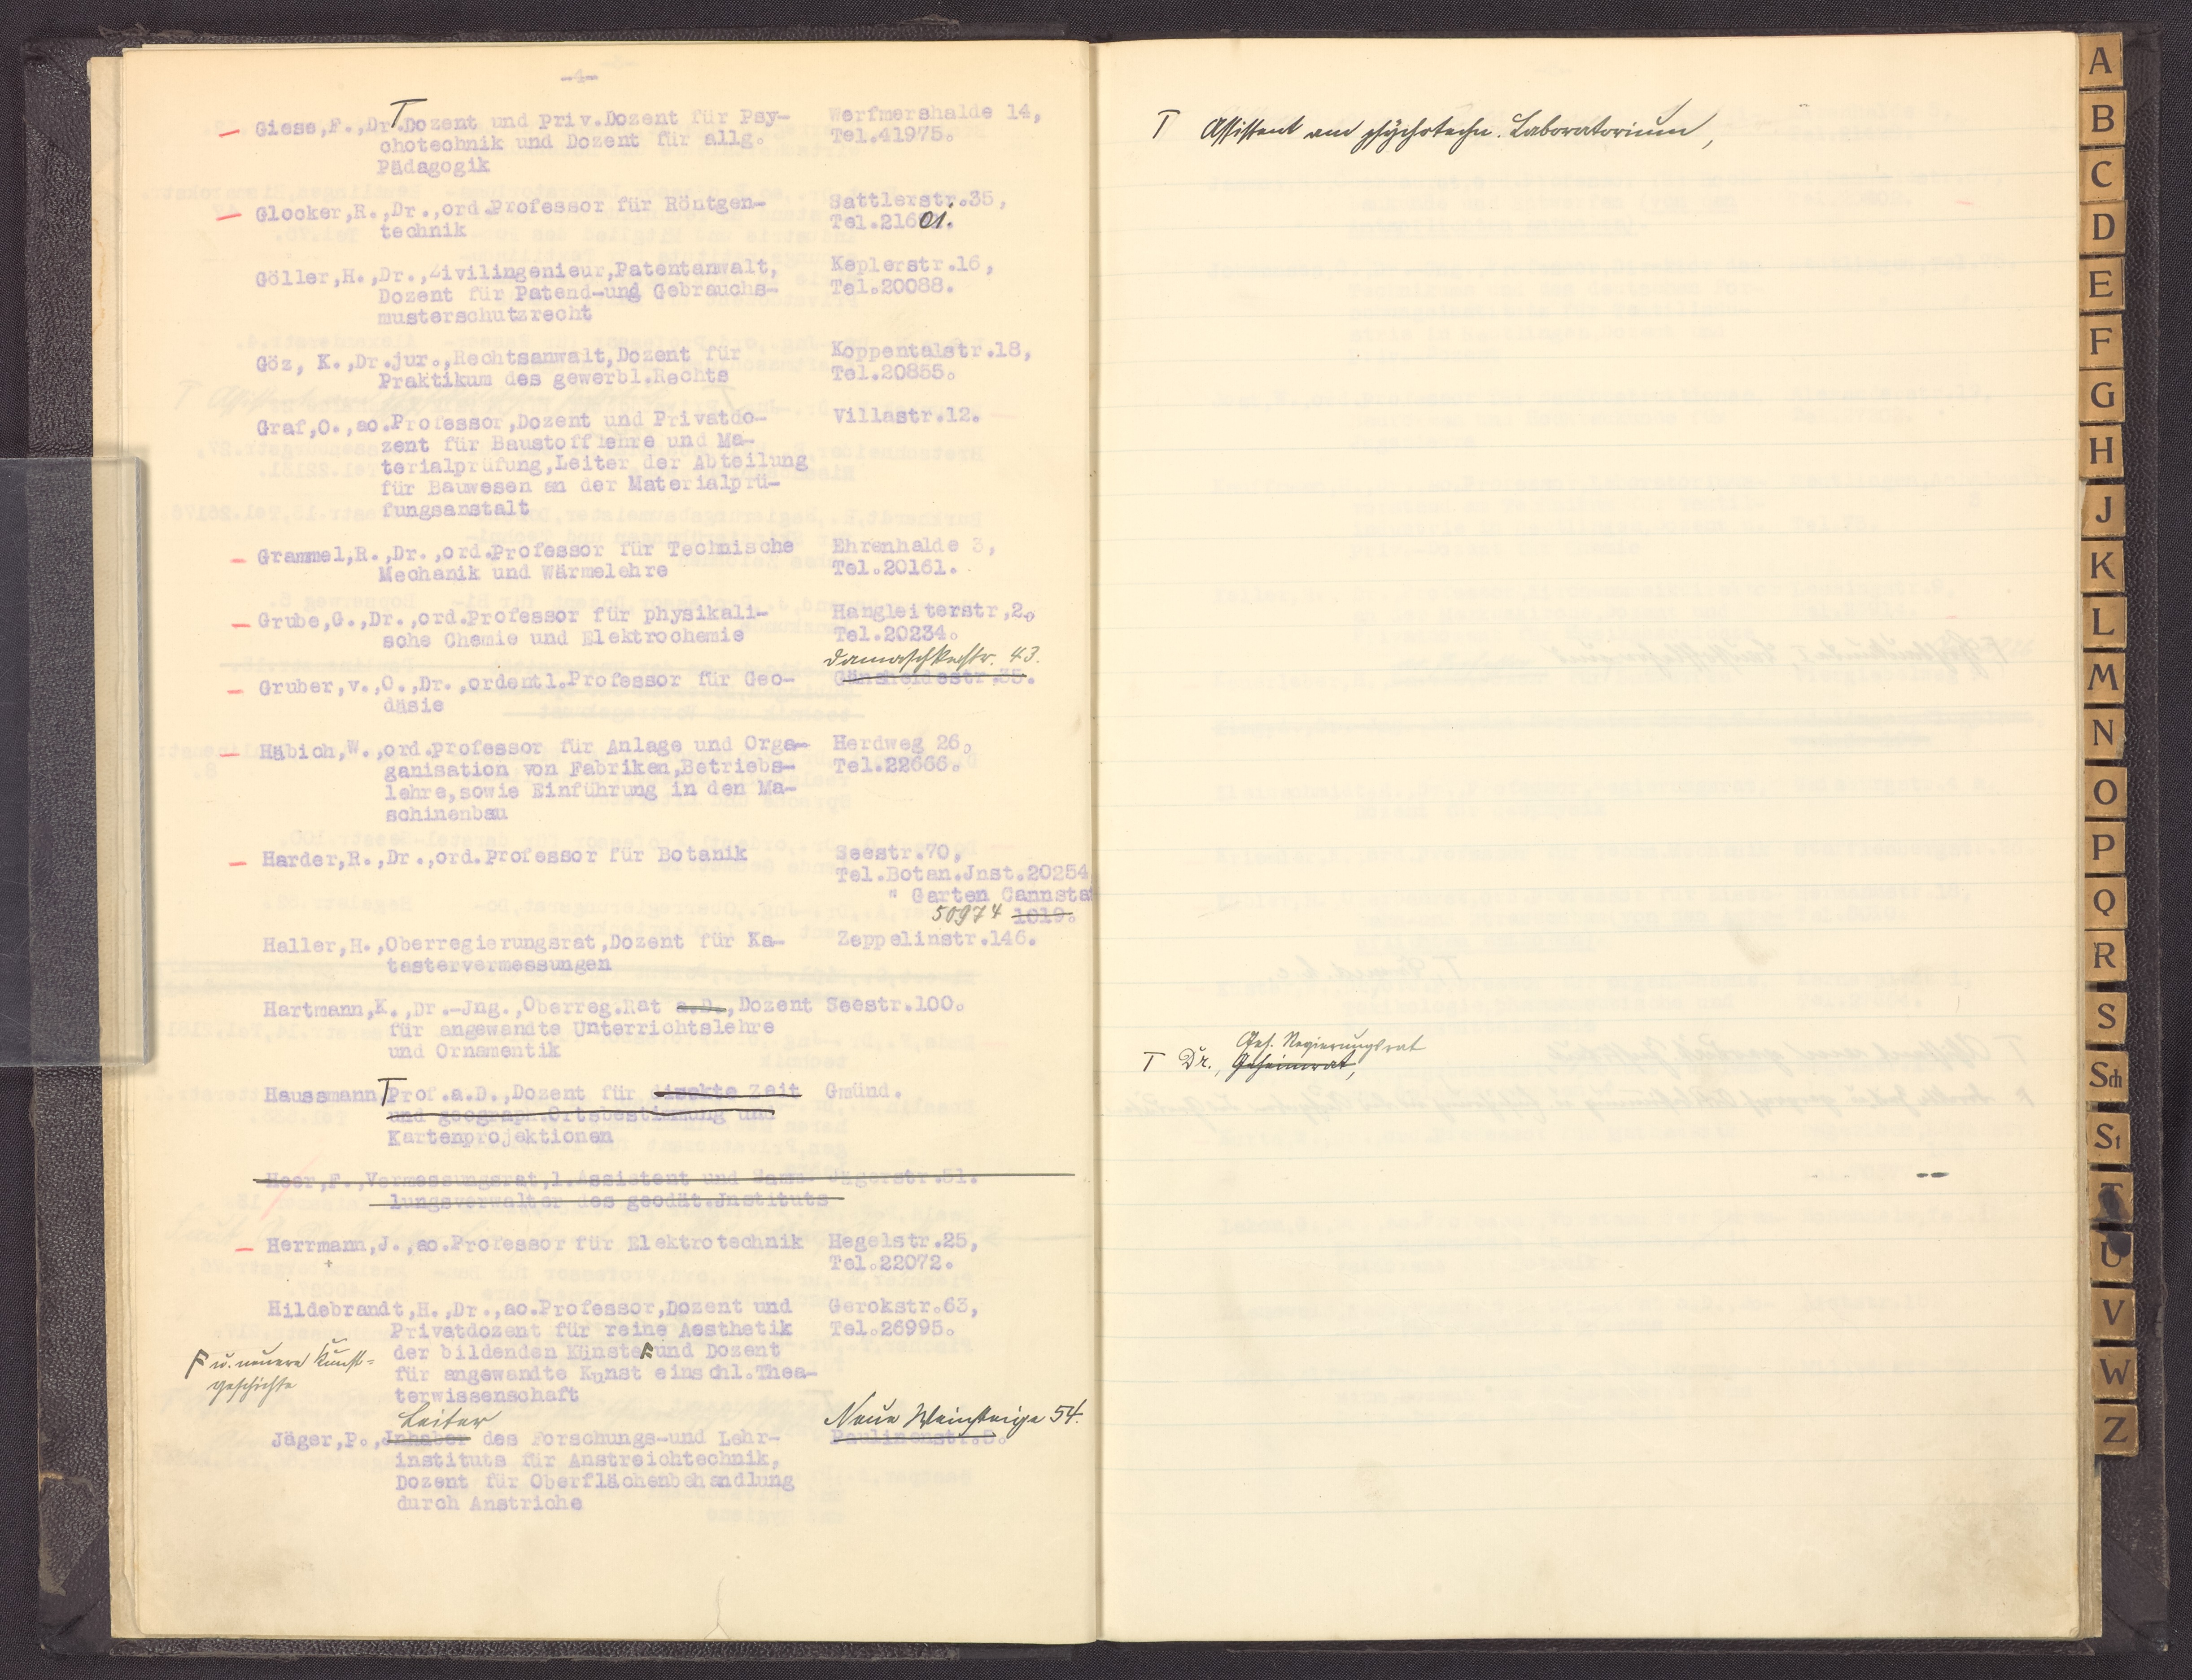 -4-
Giese,F.,Dr. T Dozent und Priv.Dozent für Psy- Werfmershalde 14,
chotechnik und Dozent für allg. Tel.41975.
Pädagogik
Glocker,R.,Dr.,ord.Professor für Röntgen- Sattlerstr.35,
technik Tel.21601.
Göller,H.,Dr.,Zivilingenieur,Patentanwalt, Keplerstr.16,
Dozent für Patend-und Gebrauchs- Tel.20088.
musterschutzrecht
Göz, K.,Dr.jur.,Rechtsanwalt,Dozent für Koppentalstr.18,
Praktikum des gewerbl.Rechts Tel.20855.
Graf,O.,ao.Professor,Dozent und Privatdo- Villastr.12.
zent für Baustofflehre und Ma-
terialprüfung,Leiter der Abteilung
für Bauwesen an der Materialprü-
fungsanstalt
Grammel,R.,Dr.,ord.Professor für Technische Ehrenhalde 3,
Mechanik und Wärmelehre Tel.20161.
Grube,G.,Dr.,ord.Professor für physikali- Hangleiterstr,2.
sche Chemie und Elektrochemie Tel.20234.
Damaschkestr. 43.
Gruber,v.,O.,Dr.,ordentl.Professor für Geo- Gänsheidestr.35.
däsie
Häbich,W.,ord.Professor für Anlage und Orga- Herdweg 26.
ganisation von Fabriken,Betriebs- Tel.22666.
lehre,sowie Einführung in den Ma-
schinenbau
Harder,R.,Dr.,ord.Professor für Botanik Seestr.70,
Tel.Botan.Jnst.20254
" Garten Cannsta
50974 1019.
Haller,H.,Oberregierungsrat,Dozent für Ka- Zeppelinstr.146.
tastervermessungen
Hartmann,K.,Dr.-Jng.,Oberreg.Rat a.D.,Dozent Seestr.100.
für angewandte Unterrichtslehre
und Ornamentik
Haussmann T Prof.a.D.,Dozent für direkte Zeit Gmünd.
und geograph.Ortsbestimmung und
Kartenprojektionen
Heer,F.,Vermessungsrat,1.Assistent und Samm- Jägerstr.51.
lungsverwalter des geodät.Jnstituts
Herrmann,J.,ao.Professor für Elektrotechnik Hegelstr.25,
Tel.22072.
Hildebrandt,H.,Dr.,ao.Professor,Dozent und Gerokstr.63,
Privatdozent für reine Aesthetik Tel.26995.
der bildenden Künste F und Dozent
F u. neuere Kunst=
für angewandte Kunst einschl.Thea-
geschichte
terwissenschaft
Leiter Neue Weinsteige 54.
Jäger,P.,Jnhaber des Forschungs-und Lehr- Paulinenstr.5.
instituts für Anstreichtechnik,
Dozent für Oberflächenbehandlung
durch Anstriche
T Assistent am psychotechn. Laboratorium,
Geh. Regierungsrat
T Dr., Geheimrat,
A
B
C
D
E
F
G
H
J
K
L
M
N
O
P
Q
R
S
Sch
St
T
U
V
W
Z